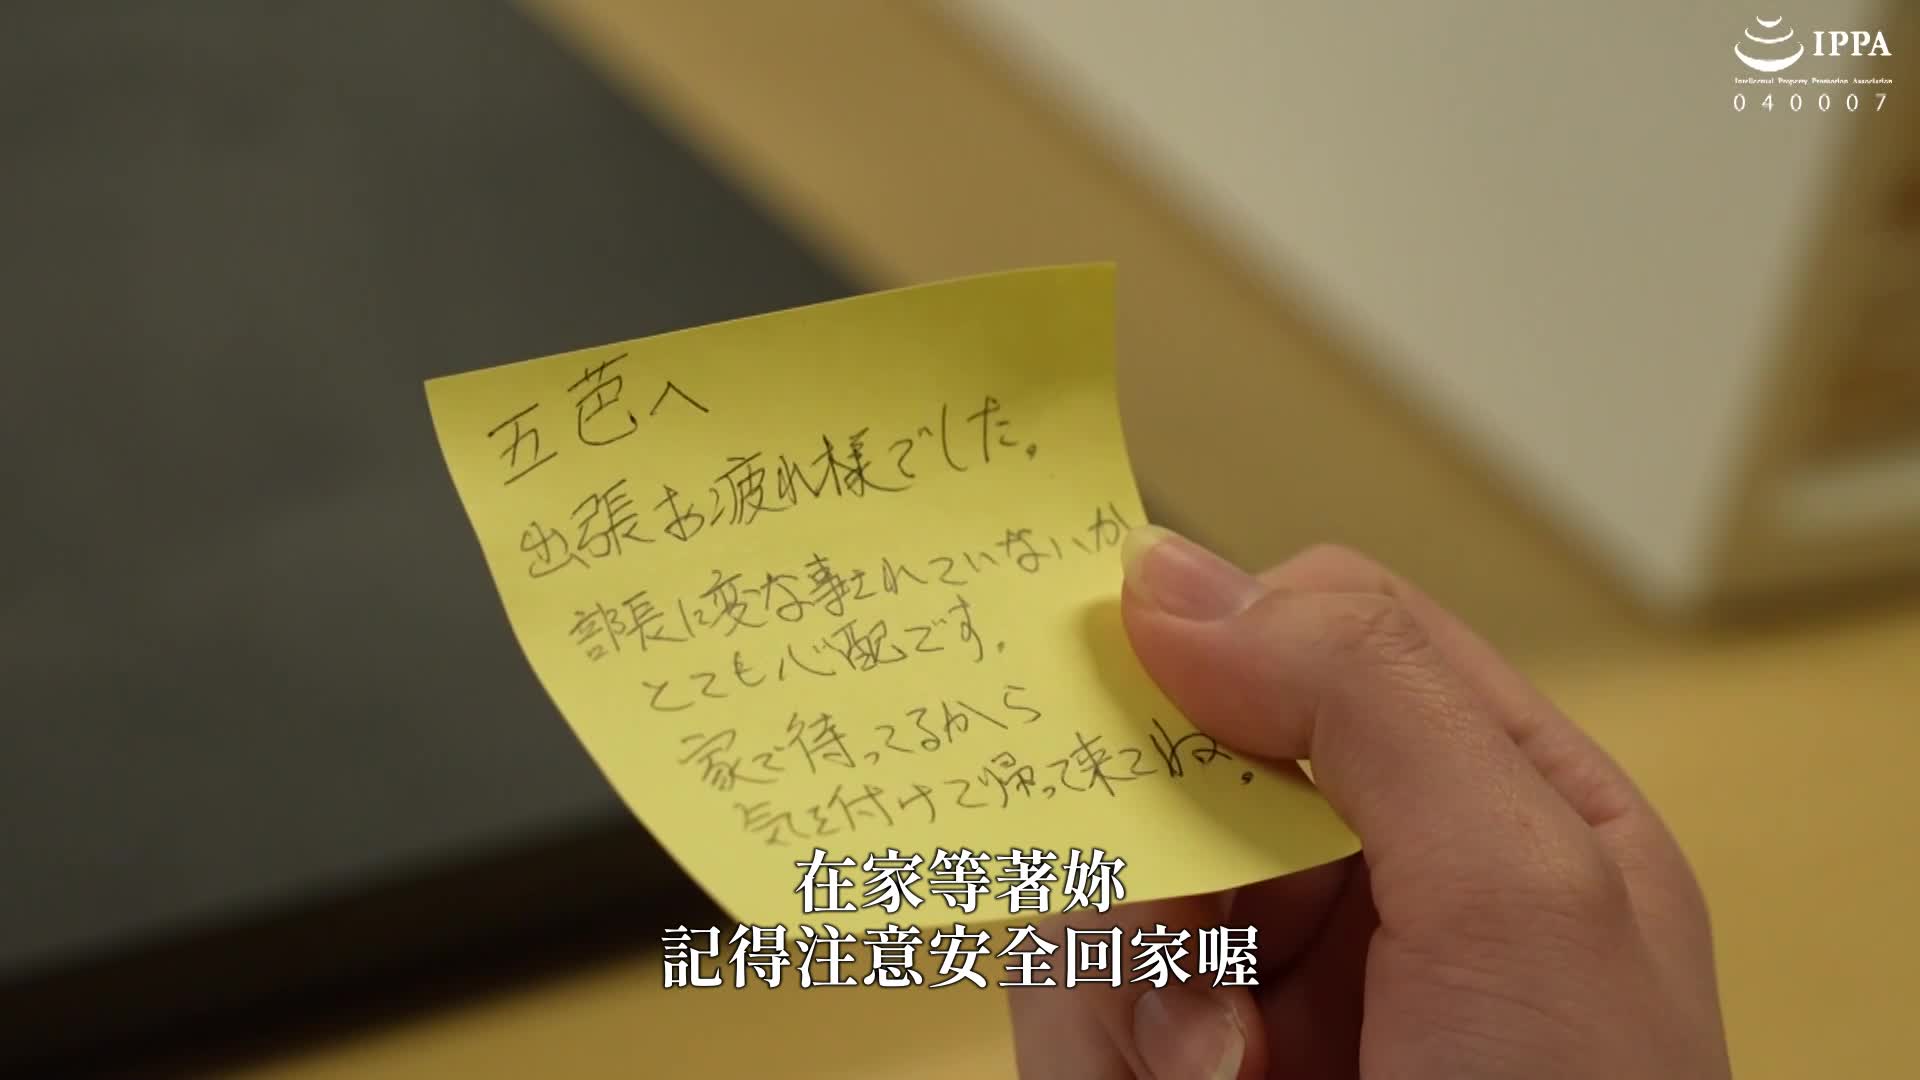 IPPA
Intellectual Property Promotion Association
040007
五芭へ
出張お疲れ様でした。
部長に変な事されていないか
とても心配です。
家で待ってるから
気を付けて帰って来てね。
在家等著妳
記得注意安全回家喔